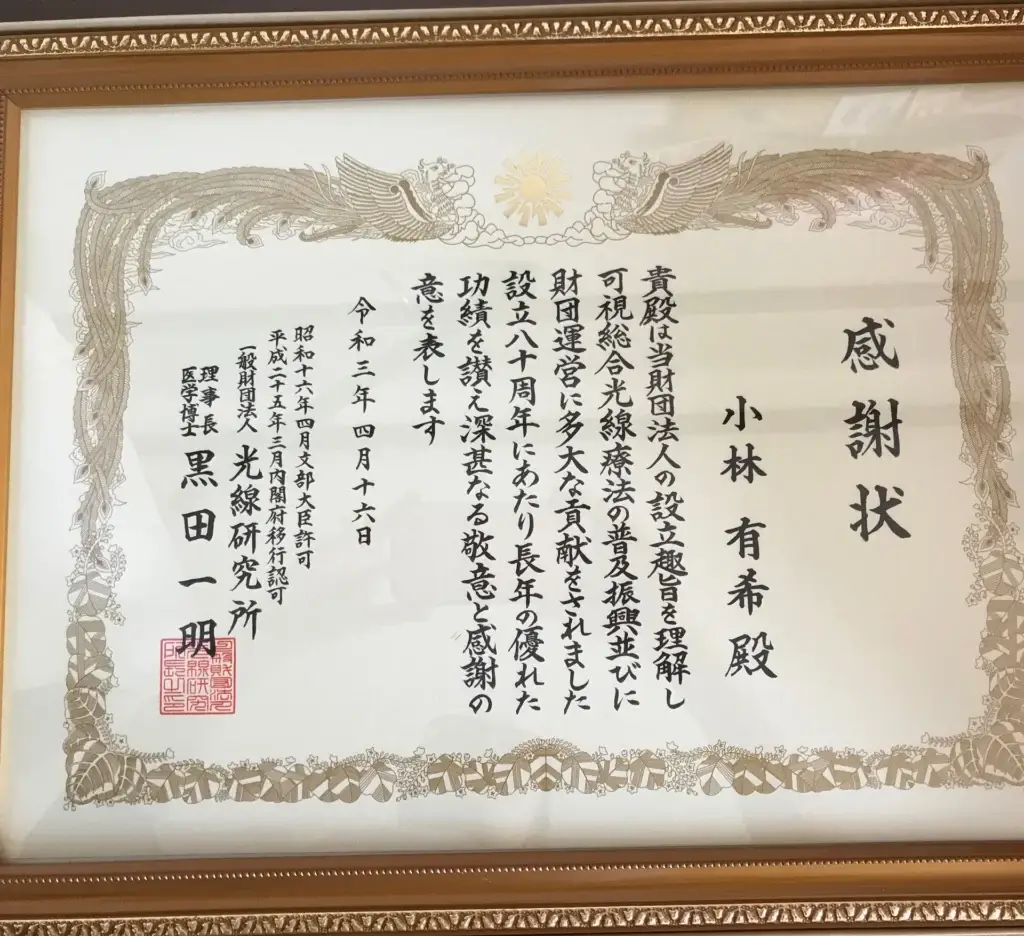 感謝状
小林 有希 殿
貴殿は当財団法人の設立趣旨を理解し
可視総合光線療法の普及振興並びに
財団運営に多大な貢献をされました
設立八十周年にあたり長年の優れた
功績を讃え深甚なる敬意と感謝の
意を表します
令和三年四月十六日
昭和十六年四月文部大臣許可
平成二十五年三月内閣府移行認可
一般財団法人 光線研究所
理事長
医学博士 黒田一明